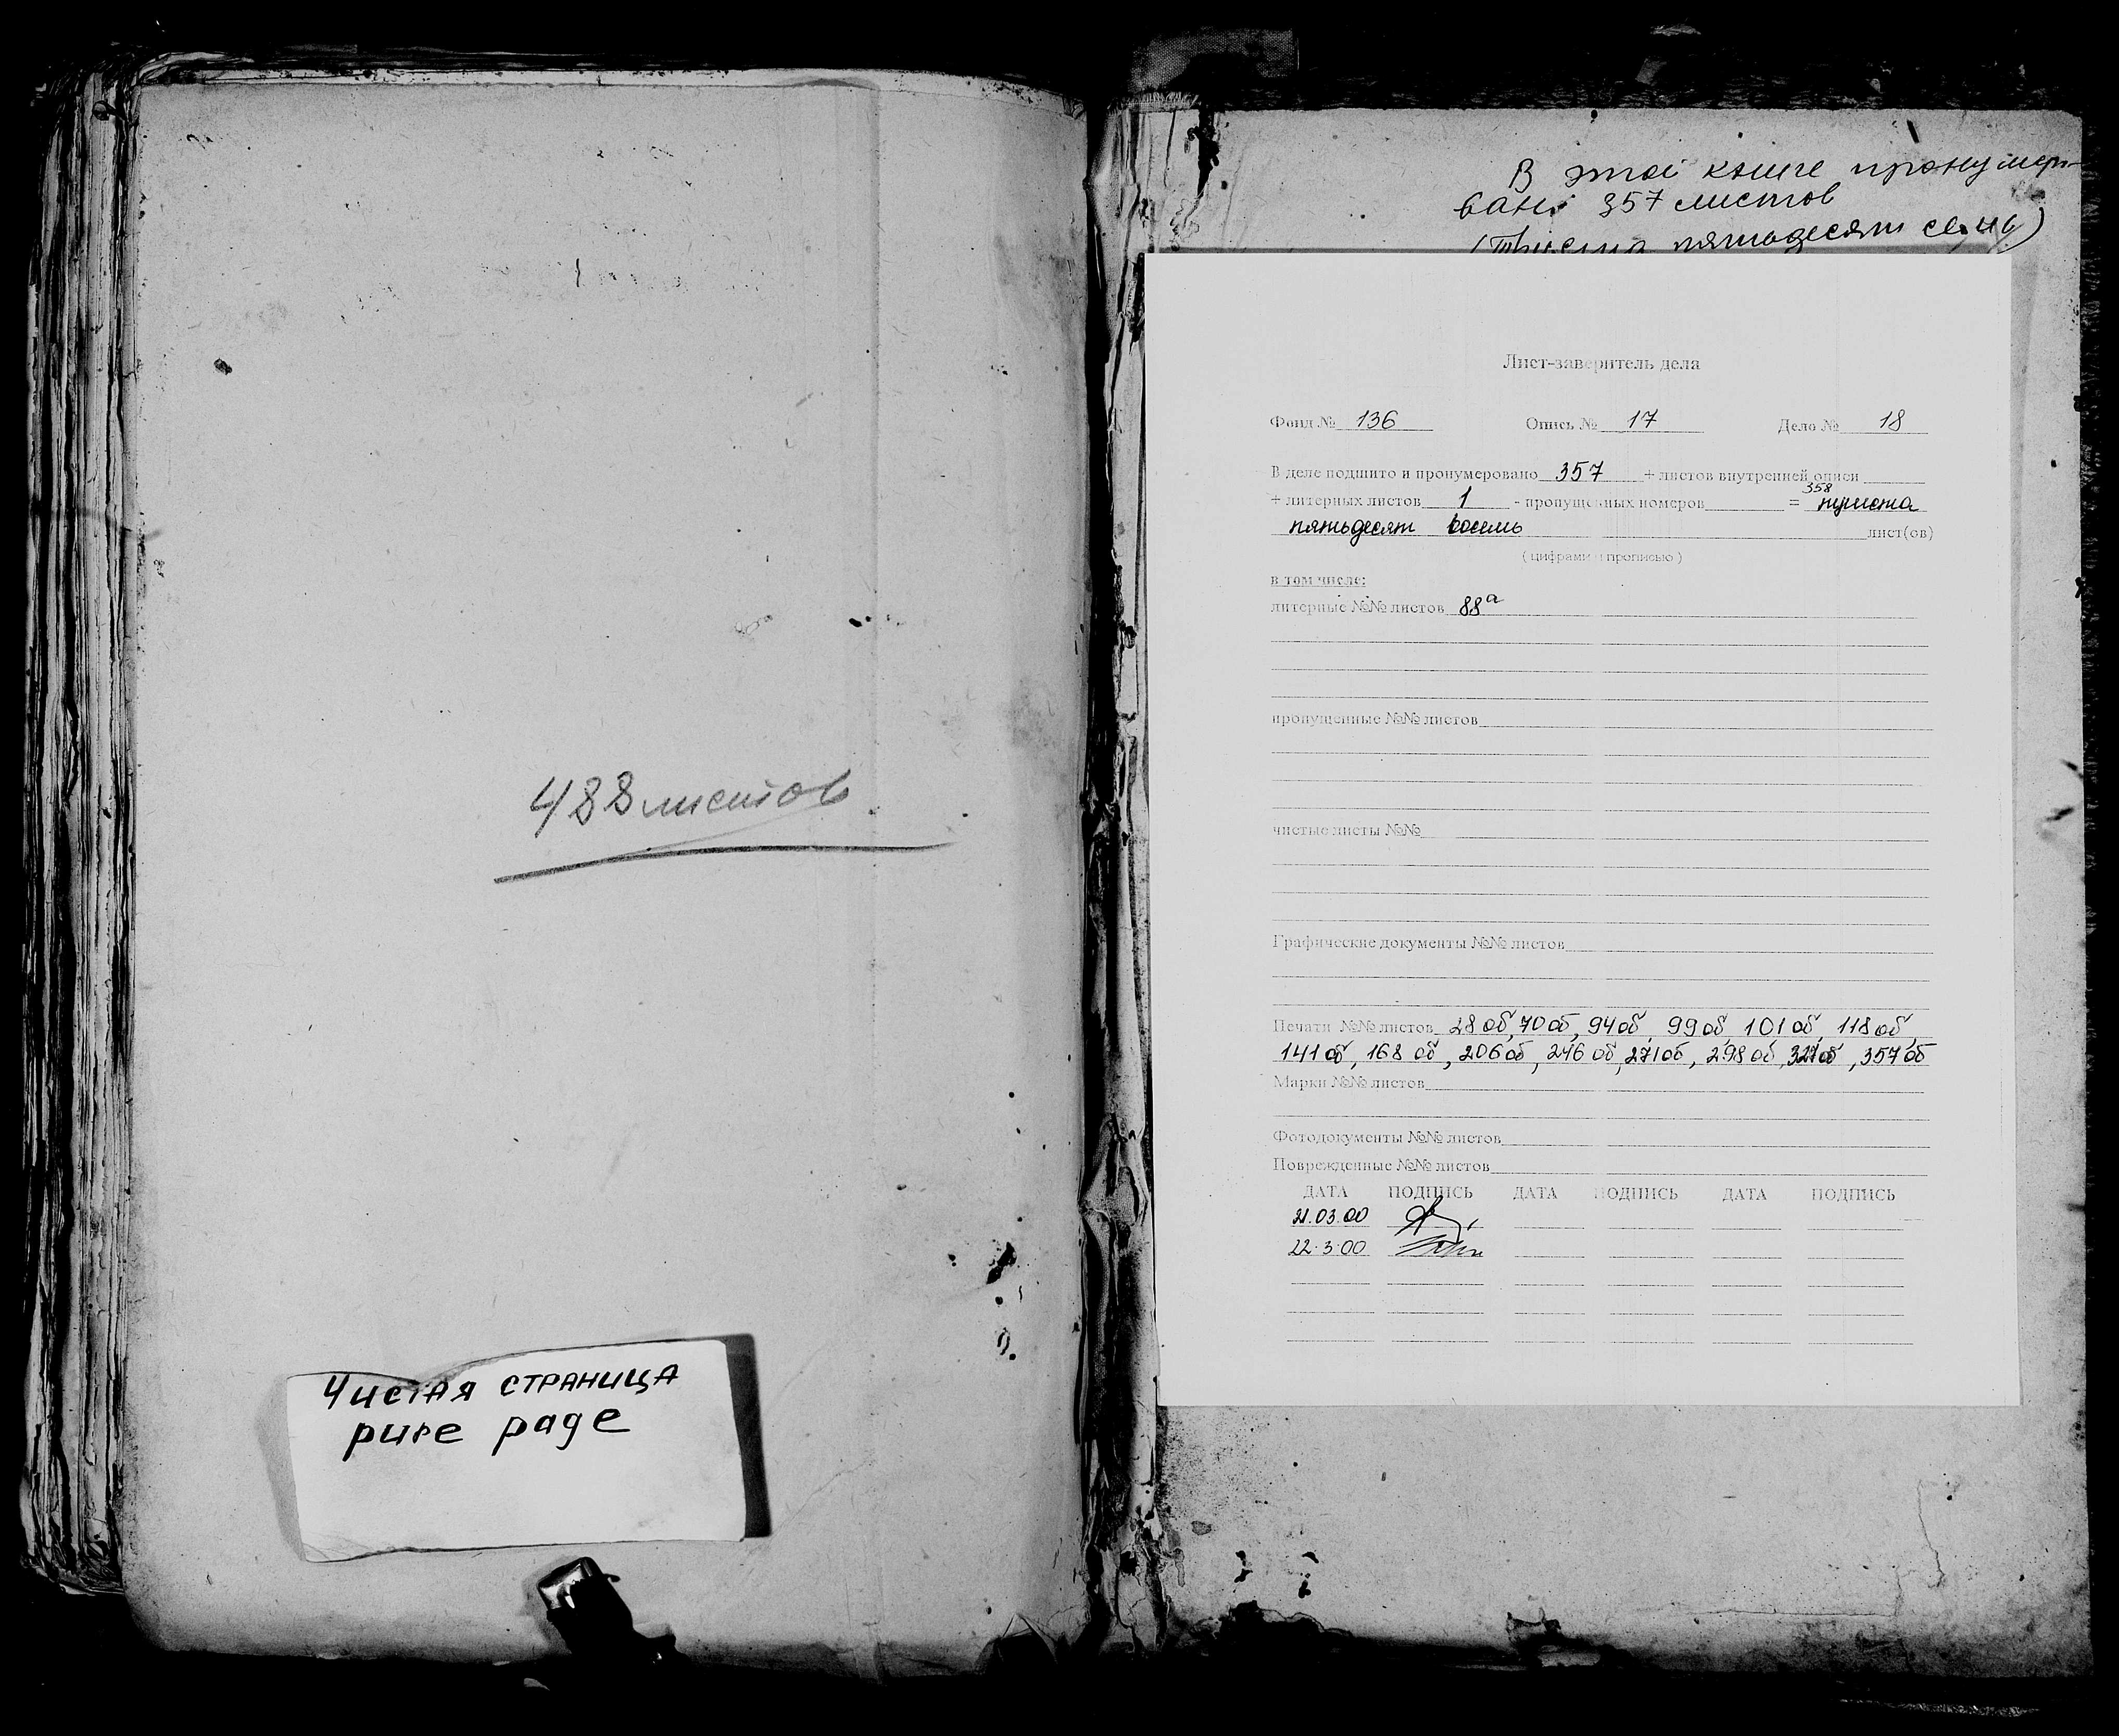 488 листов
Чистая страница
pure page
В этой книге пронумеро-
вано 357 листов
(Триста пятьдесят семь)
Лист-заверитель дела
Фонд № 136 Опись № 17 Дело № 18
В деле подшито и пронумеровано 357 + листов внутренней описи
358
+ литерных листов 1 - пропущенных номеров = триста
пятьдесят восемь лист(ов)
( цифрами и прописью )
в том числе:
литерные №№ листов 88а
пропущенные №№ листов
чистые листы №№
Графические документы №№ листов
Печати №№ листов 28 об, 70 об, 94 об, 99 об, 101 об, 118 об,
141 об, 168 об, 206 об, 246 об, 271 об, 298 об, 327 об, 357 об
Марки №№ листов
Фотодокументы №№ листов
Поврежденные №№ листов
ДАТА ПОДПИСЬ ДАТА ПОДПИСЬ ДАТА ПОДПИСЬ
21.03.00
22.3.00